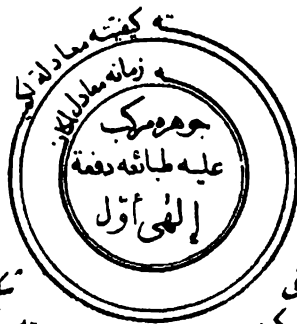 ته كيفيته معادلة لكميـ
ـه زمانه معادل لمكانـ
جوهره مركب
عليه طبائعه دفعة
إلهي أول